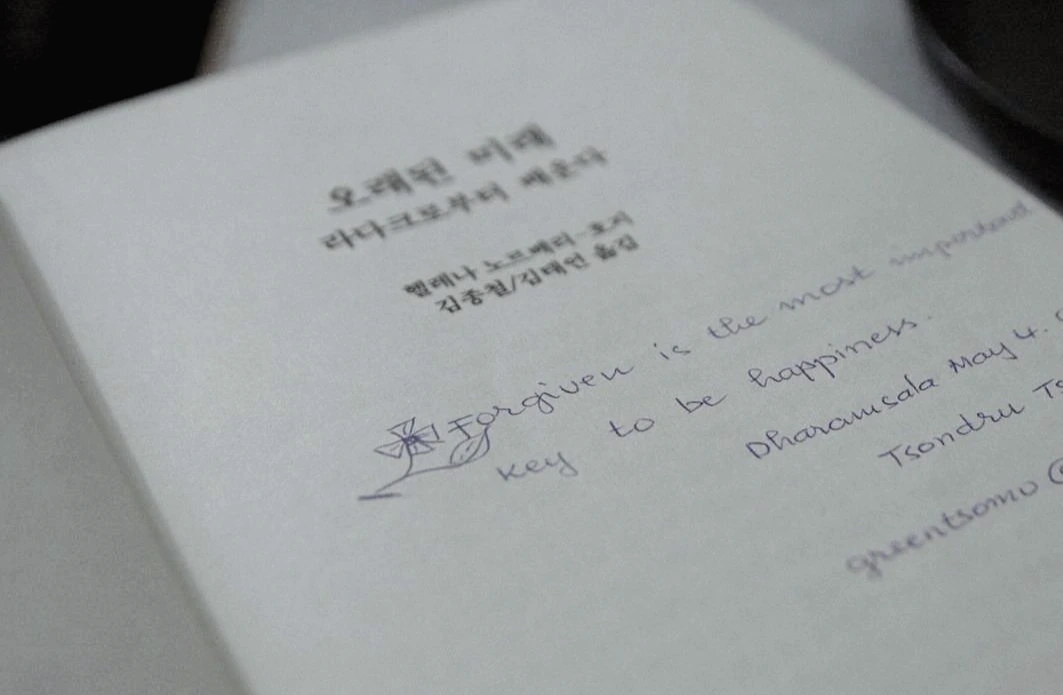 오래된 미래
라다크로부터 배운다
헬레나 노르베리-호지
김종철/김태언 옮김
Forgiven is the most important
key to be happiness.
Dharamsala May 4.
Tsondru Ts
greentsomo @